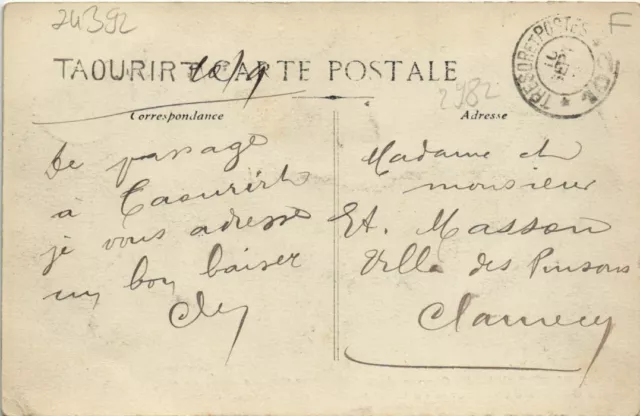 24392
F
TRESOR ET POSTES
TAOURIRT CARTE POSTALE
2982
Correspondance
Adresse
De passage
à Taourirt
je vous adresse
un bon baiser
Madame et
monsieur
Et. Masson
Villa des Pinsons
Clamecy